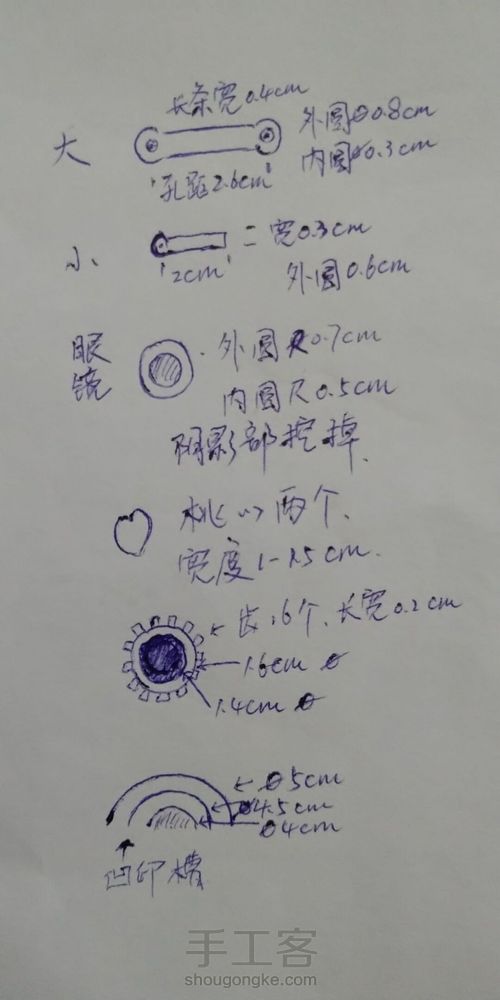 长条宽0.4cm
大
外圆Ø0.8cm
内圆Ø0.3cm
孔距2.6cm
小
宽0.3cm
2cm
外圆0.6cm
眼镜
外圆R0.7cm
内圆R0.5cm
阴影部挖掉.
桃心 两个.
宽度1-1.5cm.
齿16个.长宽0.2cm
1.6cm Ø
1.4cm Ø
Ø5cm
Ø4.5cm
Ø4cm
凹印槽
手工客
shougongke.com